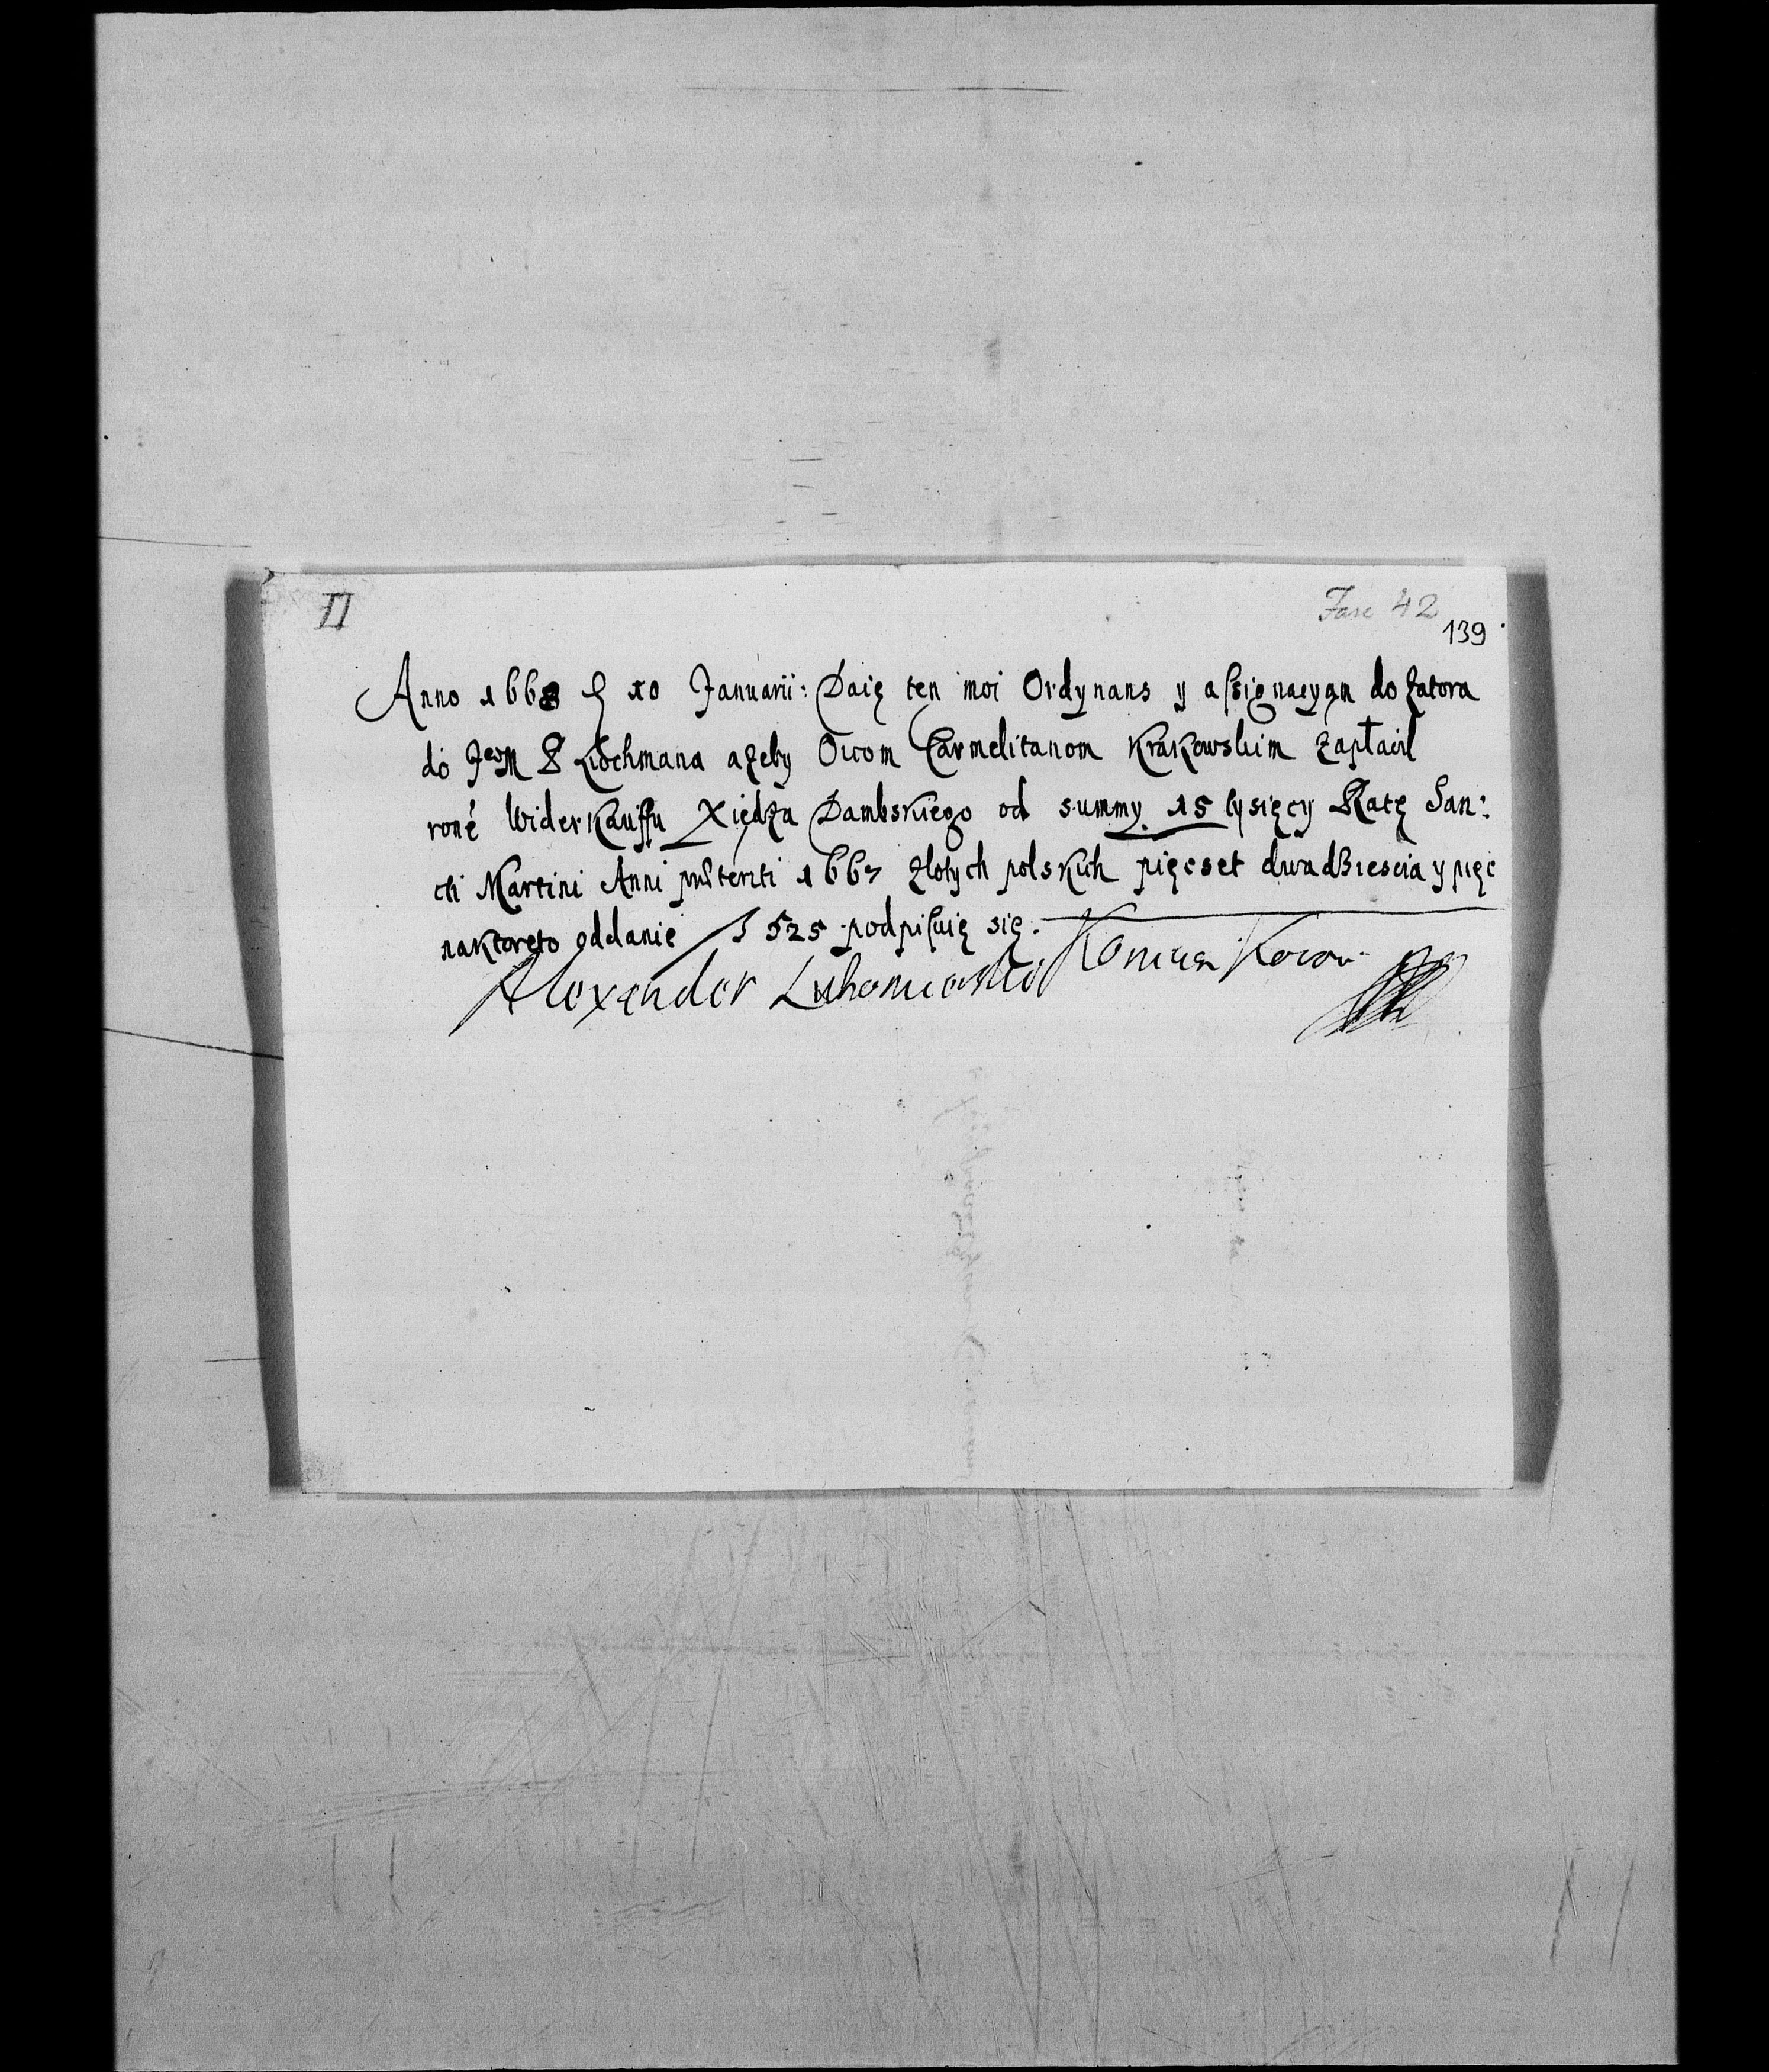 II
Fasc 42
139
Anno 1668 d 10 Januarii: Daię ten moi Ordynans y assignacyąn do Zatora
do JeoM P Lochmana azeby Oicom Carmelitanom Krakowskim zapłacił
roné Widerkauffu Xiędza Dambskiego od summy 15 tysięcy Ratę San:
cti Martini Anni præteriti 1667 złotych polskich pięcset dwadziescia y pięc
naktoręto oddanie f 525 podpisuię się.
Alexander Lubomirski Koniuszy Koron